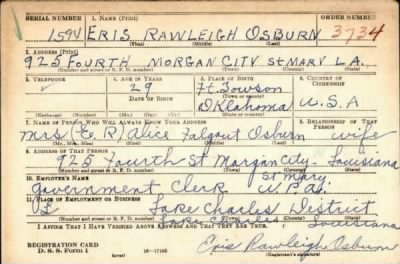 SERIAL NUMBER 1. NAME (Print) ORDER NUMBER
1594 ERIS RAWLEIGH OSBURN 3734
(First) (Middle) (Last)
2. ADDRESS (Print)
925 FOURTH MORGAN CITY ST MARY LA.
(Number and street or R. F. D. number) (Town) (County) (State)
3. TELEPHONE 4. AGE IN YEARS 5. PLACE OF BIRTH 6. COUNTRY OF CITIZENSHIP
29 Ft. Towson
DATE OF BIRTH (Town or county)
Oklahoma U.S.A
(Exchange) (Number) (Mo.) (Day) (Yr.) (State or country)
7. NAME OF PERSON WHO WILL ALWAYS KNOW YOUR ADDRESS 8. RELATIONSHIP OF THAT PERSON
Mrs (E. R) Alice Falgout Osburn wife
(Mr., Mrs., Miss) (First) (Middle) (Last)
9. ADDRESS OF THAT PERSON
925 Fourth St Morgan City - Louisiana
(Number and street or R. F. D. number) (Town) (County) (State)
10. EMPLOYER'S NAME St Mary
Government Clerk W.P.A.
11. PLACE OF EMPLOYMENT OR BUSINESS
Lake Charles District
Lake Charles Louisiana
(Number and street or R. F. D. number) (Town) (County) (State)
I AFFIRM THAT I HAVE VERIFIED ABOVE ANSWERS AND THAT THEY ARE TRUE.
REGISTRATION CARD
D. S. S. Form 1 (over) 16-17105 Eris Rawleigh Osburn